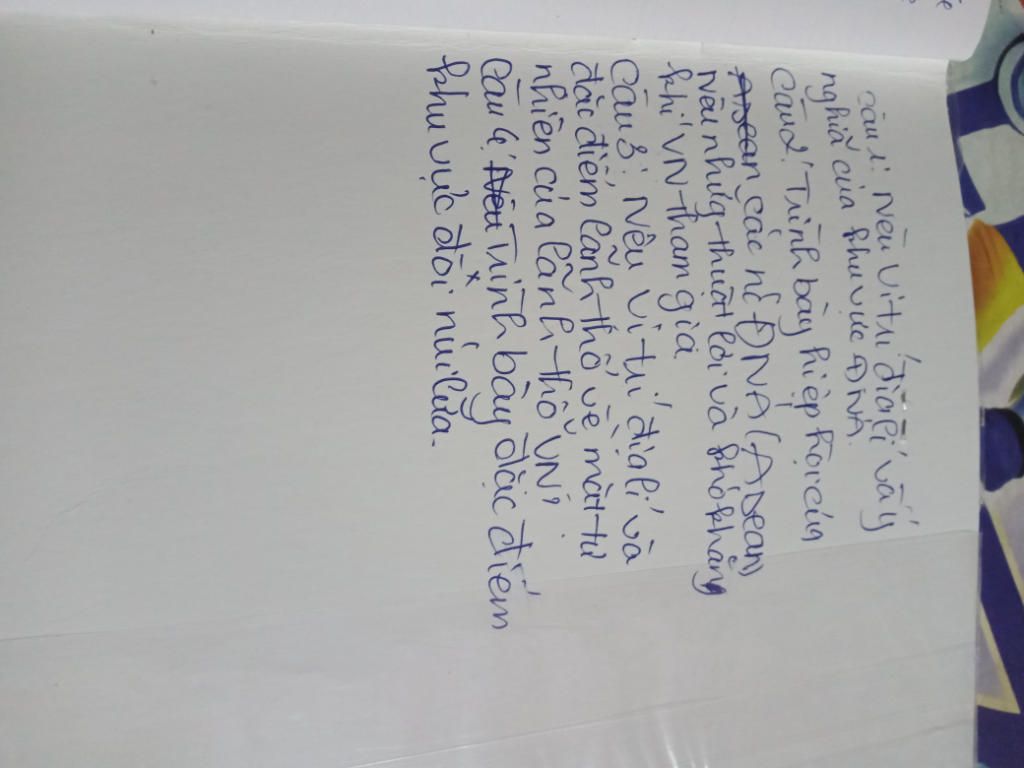 Câu 1: Nêu vị trí địa lí và ý
nghĩa của khu vực ĐNA.
Câu 2: Trình bày hiệp hội của
Asean các nc ĐNA (Asean)
Nêu những thuật lợi và khó khăng
khi VN tham gia
Câu 3: Nêu vị trí địa lí và
đặc điểm lãnh thổ về mặt tự
nhiên của lãnh thổ VN?
Câu 4: Nêu Trình bày đặc điểm
khu vực đồi núi lửa.